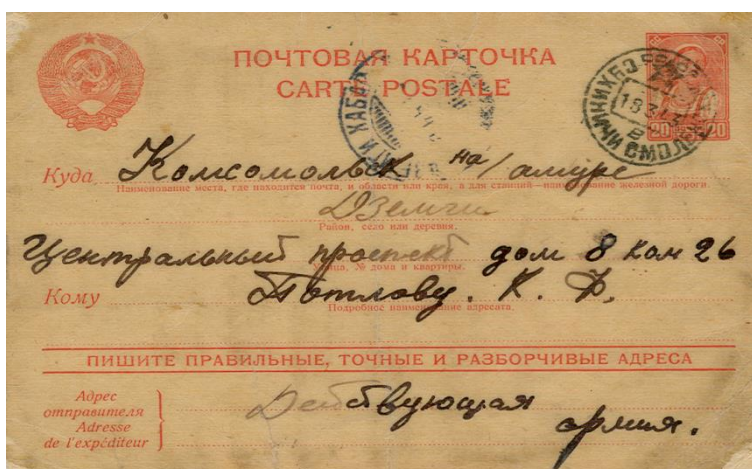 ПОЧТОВАЯ КАРТОЧКА
CARTE POSTALE
20 20
Куда Комсомольск на/амуре
Наименование места, где находится почта, и области или края, а для станций—наименование железной дороги.
Дземги
Район, село или деревня.
Центральный проспект дом 8 ком 26
Улица, № дома и квартиры.
Кому Потлову. К. Ф.
Подробное наименование адресата.
ПИШИТЕ ПРАВИЛЬНЫЕ, ТОЧНЫЕ И РАЗБОРЧИВЫЕ АДРЕСА
Адрес
отправителя
Adresse
de l'expéditeur
Действующая
армия.